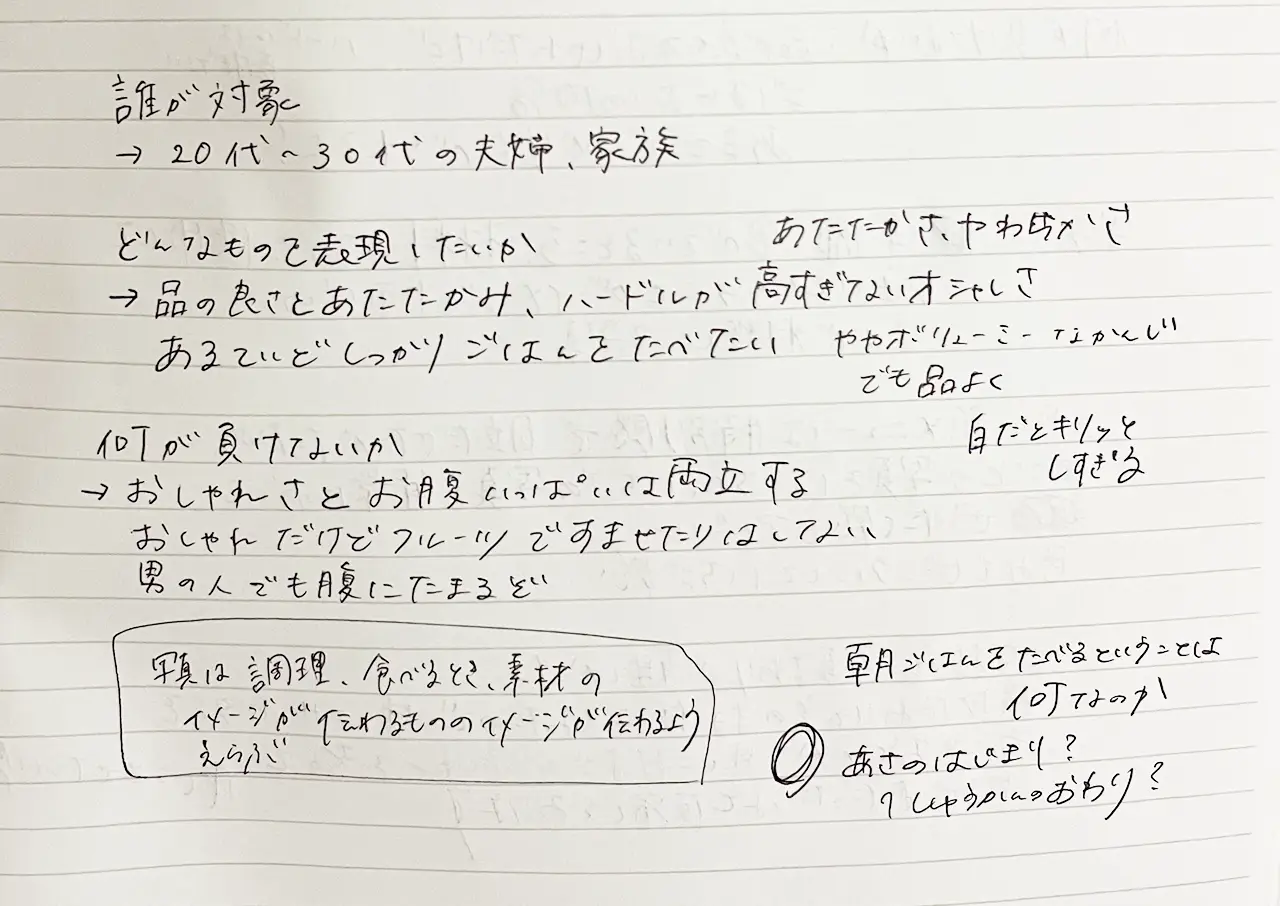 誰が対象
→ 20代〜30代の夫婦、家族
どんなもので表現したいか
あたたかさ、やわらかさ
→ 品の良さとあたたかみ、ハードルが高すぎないオシャレさ
あるていどしっかりごはんをたべたい
ややボリューミーなかんじ
でも品よく
白だとキリッと
しすぎる
何が負けてないか
→ おしゃれさとお腹いっぱいは両立する
おしゃれだけどフルーツですませたりはしてない
男の人でも腹にたまるぞ
写真は調理、食べるとき、素材の
イメージが伝わるもののイメージが伝わるよう
えらぶ
朝ごはんをたべるということは
何なのか
あさのはじまり?
1しゅうかんのおわり?